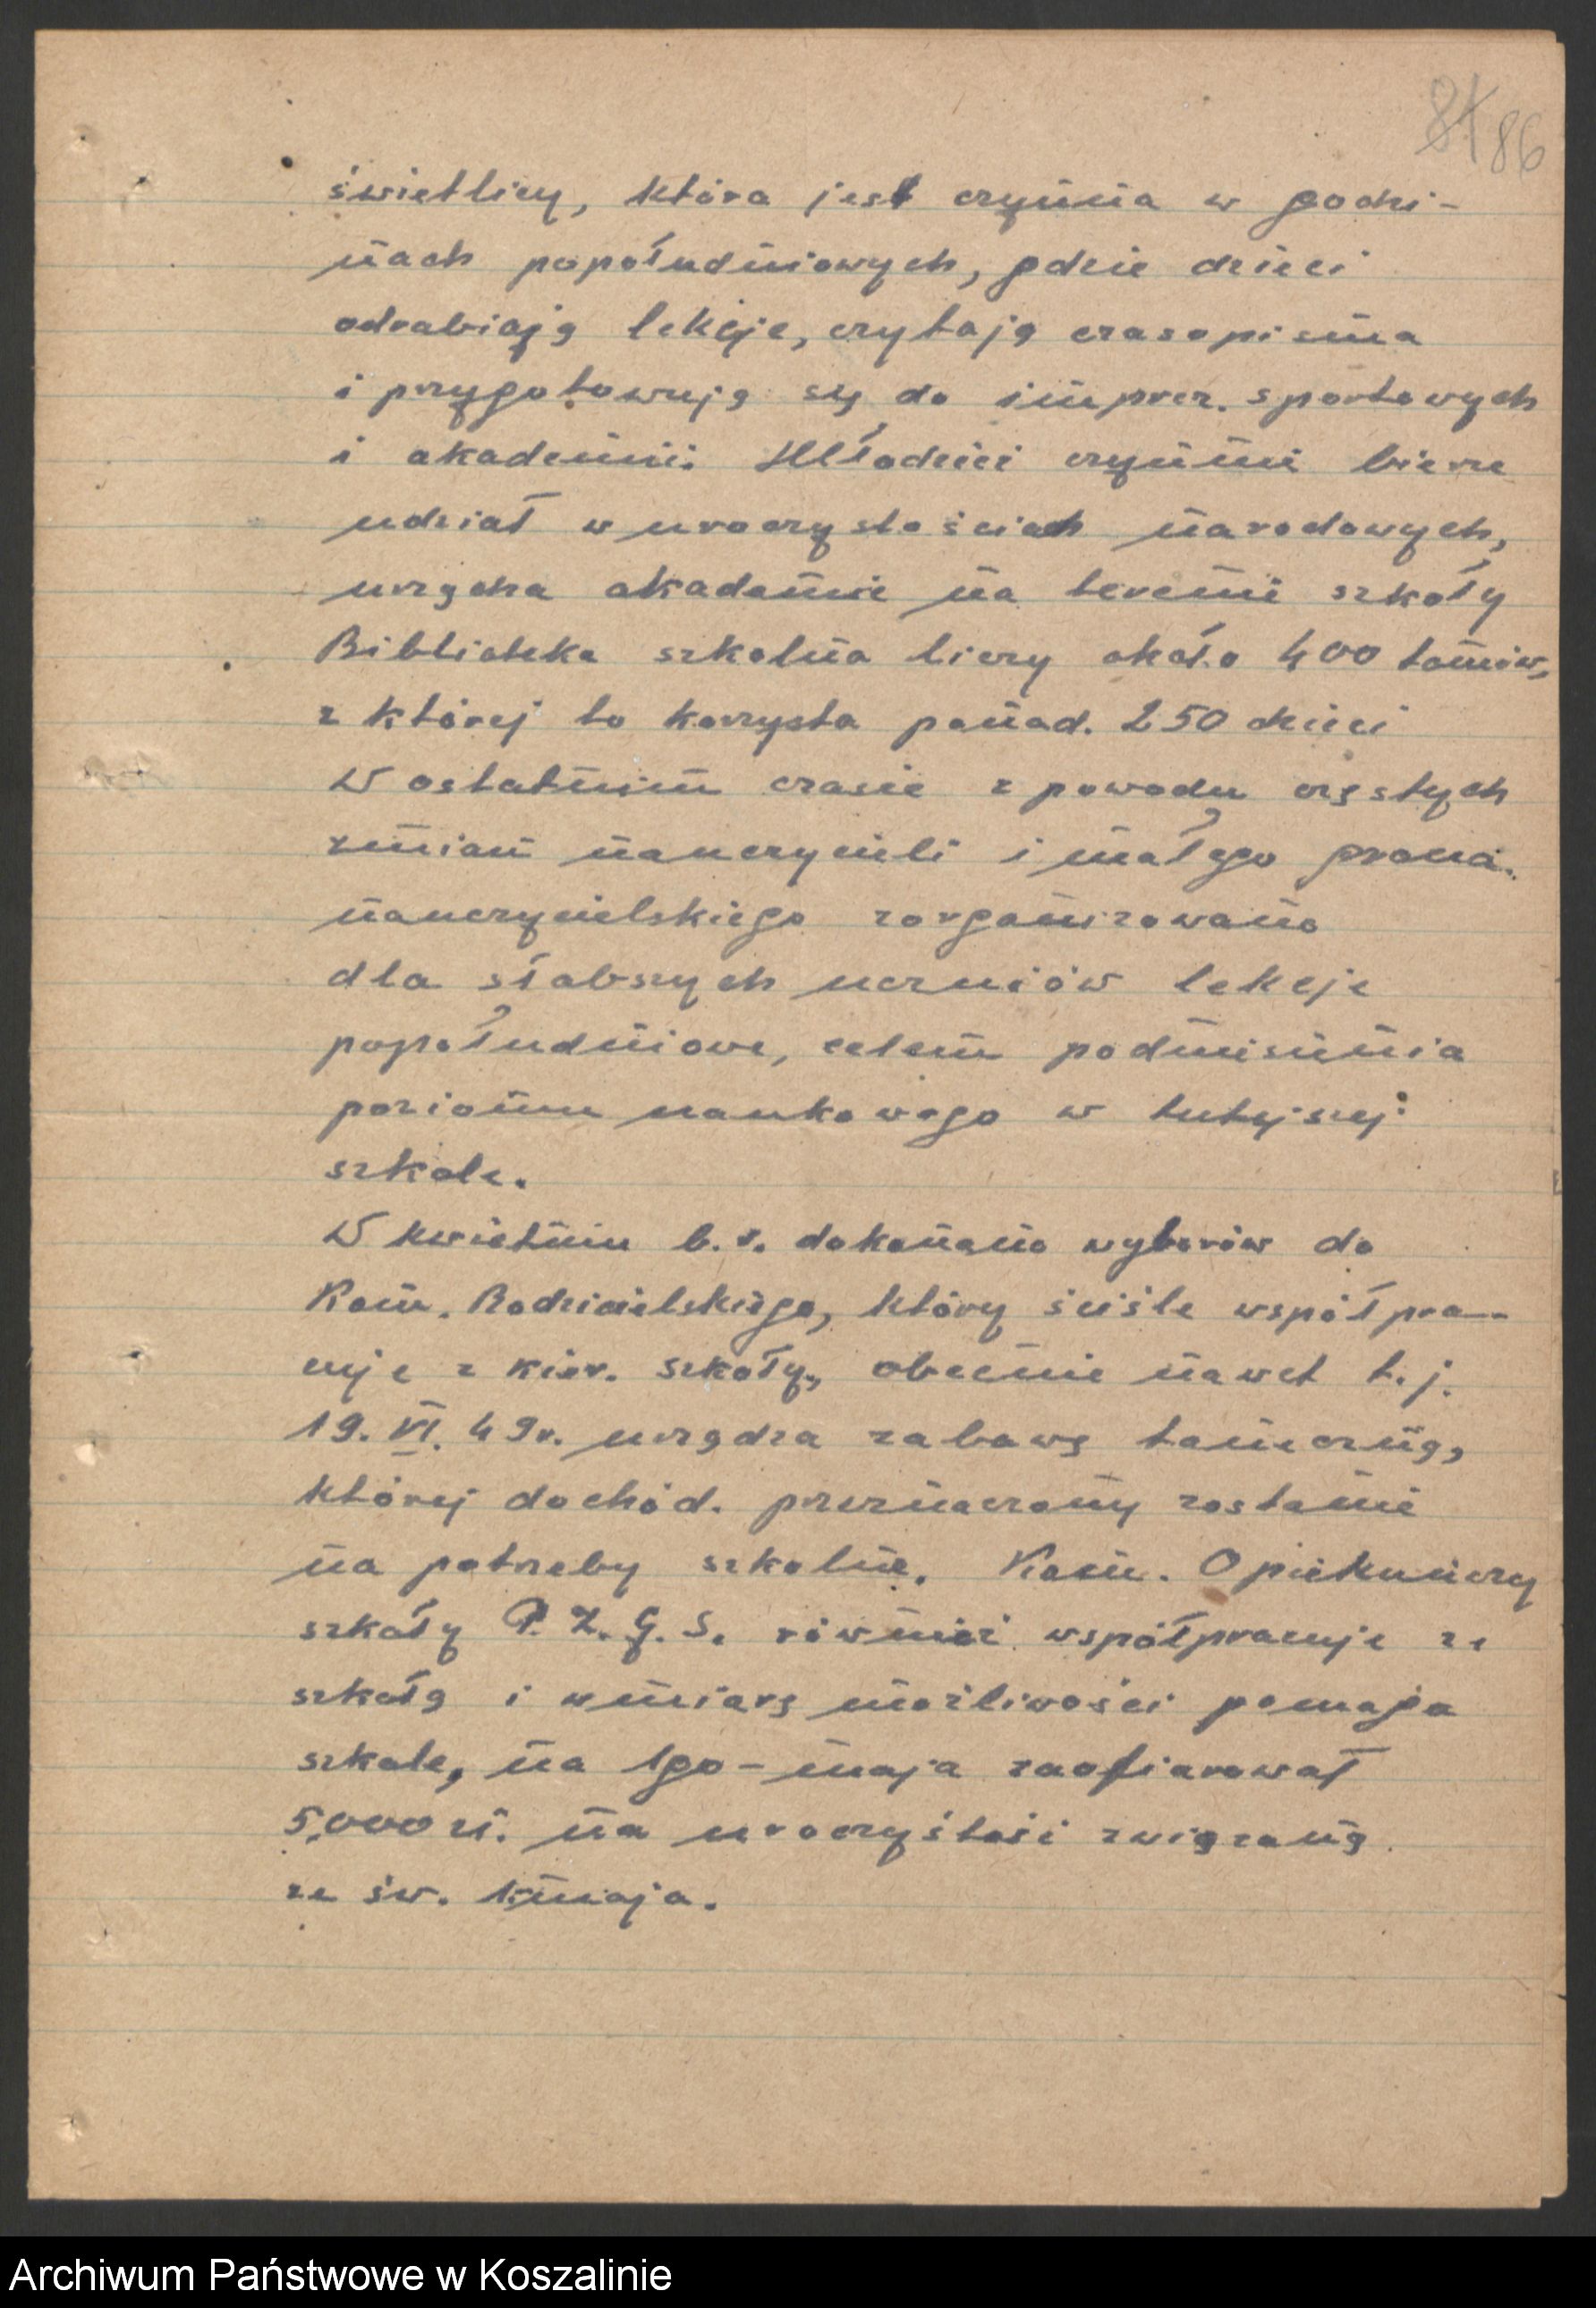 81 86
świetlicy, która jest czynna w godzi-
nach popołudniowych, gdzie dzieci
odrabiają lekcje, czytają czasopisma
i przygotowują się do imprez. sportowych
i akademii. Młodzież czynnie bierze
udział w uroczystościach narodowych,
urządza akademie na terenie szkoły
Biblioteka szkolna liczy około 400 tomów,
z której to korzysta ponad. 250 dzieci
W ostatnim czasie z powodu częstych
zmian nauczycieli i małego grona.
nauczycielskiego zorganizowano
dla słabszych uczniów lekcje
popołudniowe, celem podniesienia
poziomu naukowego w tutejszej
szkole.
W kwietniu b.r. dokonano wyborów do
Kom. Rodzicielskiego, który ściśle współpra-
cuje z kier. szkoły, obecnie nawet t.j.
19. VI. 49r. urządza zabawę taneczną,
której dochód. przeznaczony zostanie
na potrzeby szkolne. Kom. Opiekuńczy
szkoły P.Z.G.S. również współpracuje ze
szkołą i w miarę możliwości pomaga
szkole, na 1go-maja zaofiarował
5,000 zł. na uroczystość związaną
ze św. 1 maja.
Archiwum Państwowe w Koszalinie